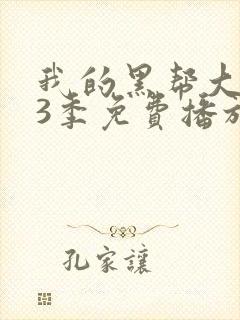 我的黑帮大
3季免費播放
孔家讓